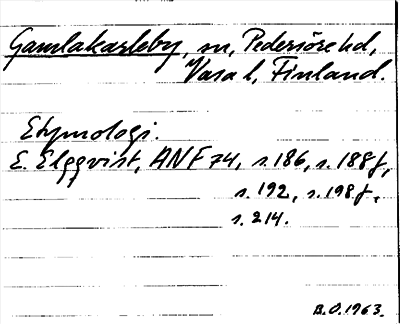 Gamlakarleby, sn, Pedersöre hd,
Vasa l, Finland.
Etymologi.
E. Elgqvist, ANF 74, s. 186, s. 188 f,
s. 192, s. 198 f,
s. 214.
B.O. 1963.